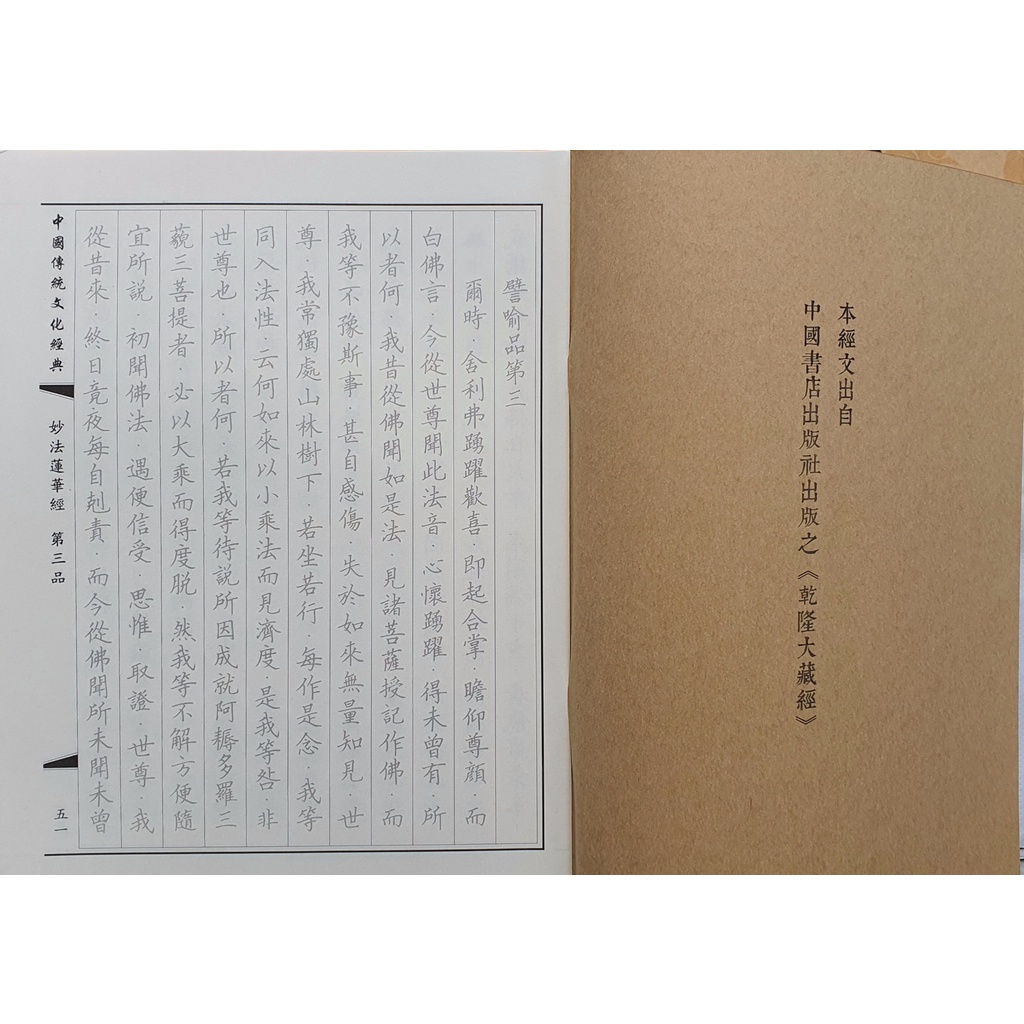 本經文出自
中國書店出版社出版之《乾隆大藏經》
譬喻品第三
爾時·舍利弗踴躍歡喜·即起合掌·瞻仰尊顏·而
白佛言·今從世尊聞此法音·心懷踴躍·得未曾有·所
以者何·我昔從佛聞如是法·見諸菩薩授記作佛·而
我等不豫斯事·甚自感傷·失於如來無量知見·世
尊·我常獨處山林樹下·若坐若行·每作是念·我等
同入法性·云何如來以小乘法而見濟度·是我等咎·非
世尊也·所以者何·若我等待說所因成就阿耨多羅三
藐三菩提者·必以大乘而得度脫·然我等不解方便隨
宜所說·初聞佛法·遇便信受·思惟·取證·世尊·我
從昔來·終日竟夜每自剋責·而今從佛聞所未聞未曾
中國傳統文化經典
妙法蓮華經 第三品
五一